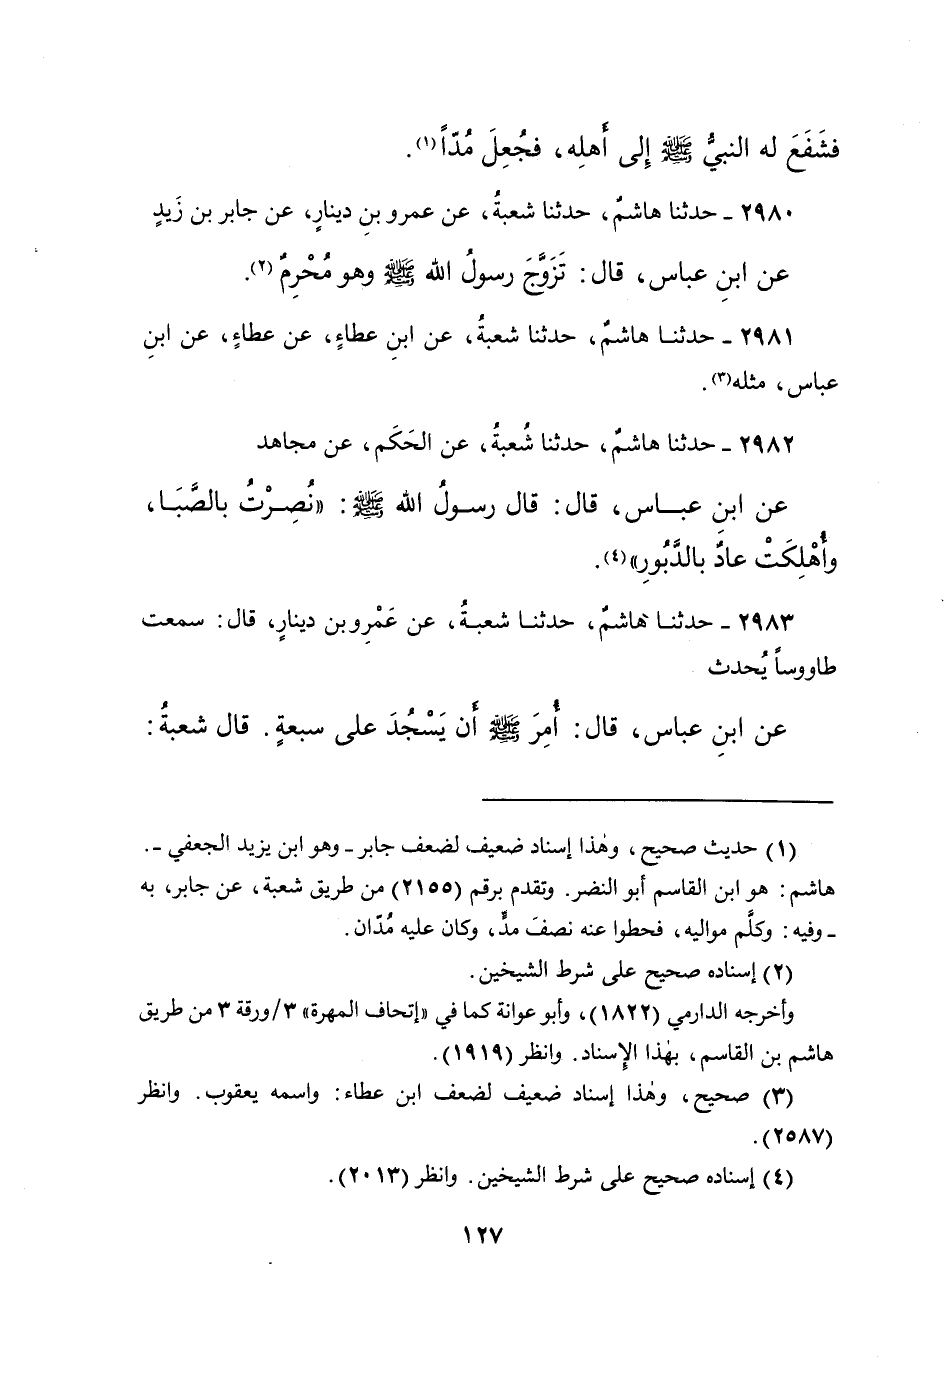 فشَفَعَ له النبيُّ ﷺ إِلى أَهلِه، فجُعِلَ مُدّاً(١).
٢٩٨٠ ـ حدثنا هاشمٌ، حدثنا شعبةُ، عن عمرو بنِ دينارٍ، عن جابر بن زَيدٍ
عن ابنِ عباس، قال: تَزَوَّجَ رسولُ الله ﷺ وهو مُحْرِمٌ(٢).
٢٩٨١ ـ حدثنا هاشمٌ، حدثنا شعبةُ، عن ابنِ عطاءٍ، عن عطاءٍ، عن ابنِ
عباس، مثله(٣).
٢٩٨٢ ـ حدثنا هاشمٌ، حدثنا شُعبةُ، عن الحَكَم، عن مجاهد
عن ابنِ عباس، قال: قال رسولُ الله ﷺ: «نُصِرْتُ بالصَّبَا،
وأُهْلِكَتْ عادٌ بالدَّبُورِ»(٤).
٢٩٨٣ ـ حدثنا هاشمٌ، حدثنا شعبةُ، عن عَمْرِو بن دينارٍ، قال: سمعت
طاووساً يُحدث
عن ابنِ عباس، قال: أُمِرَ ﷺ أَن يَسْجُدَ على سبعةٍ. قال شعبةُ:
(١) حديث صحيح، وهٰذا إسناد ضعيف لضعف جابر ـ وهو ابن يزيد الجعفي ـ.
هاشم: هو ابن القاسم أبو النضر. وتقدم برقم (٢١٥٥) من طريق شعبة، عن جابر، به
ـ وفيه: وكلَّم مواليه، فحطوا عنه نصفَ مدٍّ، وكان عليه مُدّان.
(٢) إسناده صحيح على شرط الشيخين.
وأخرجه الدارمي (١٨٢٢)، وأبو عوانة كما في «إتحاف المهرة» ٣/ورقة ٣ من طريق
هاشم بن القاسم، بهٰذا الإِسناد. وانظر (١٩١٩).
(٣) صحيح، وهٰذا إسناد ضعيف لضعف ابن عطاء: واسمه يعقوب. وانظر
(٢٥٨٧).
(٤) إسناده صحيح على شرط الشيخين. وانظر (٢٠١٣).
١٢٧